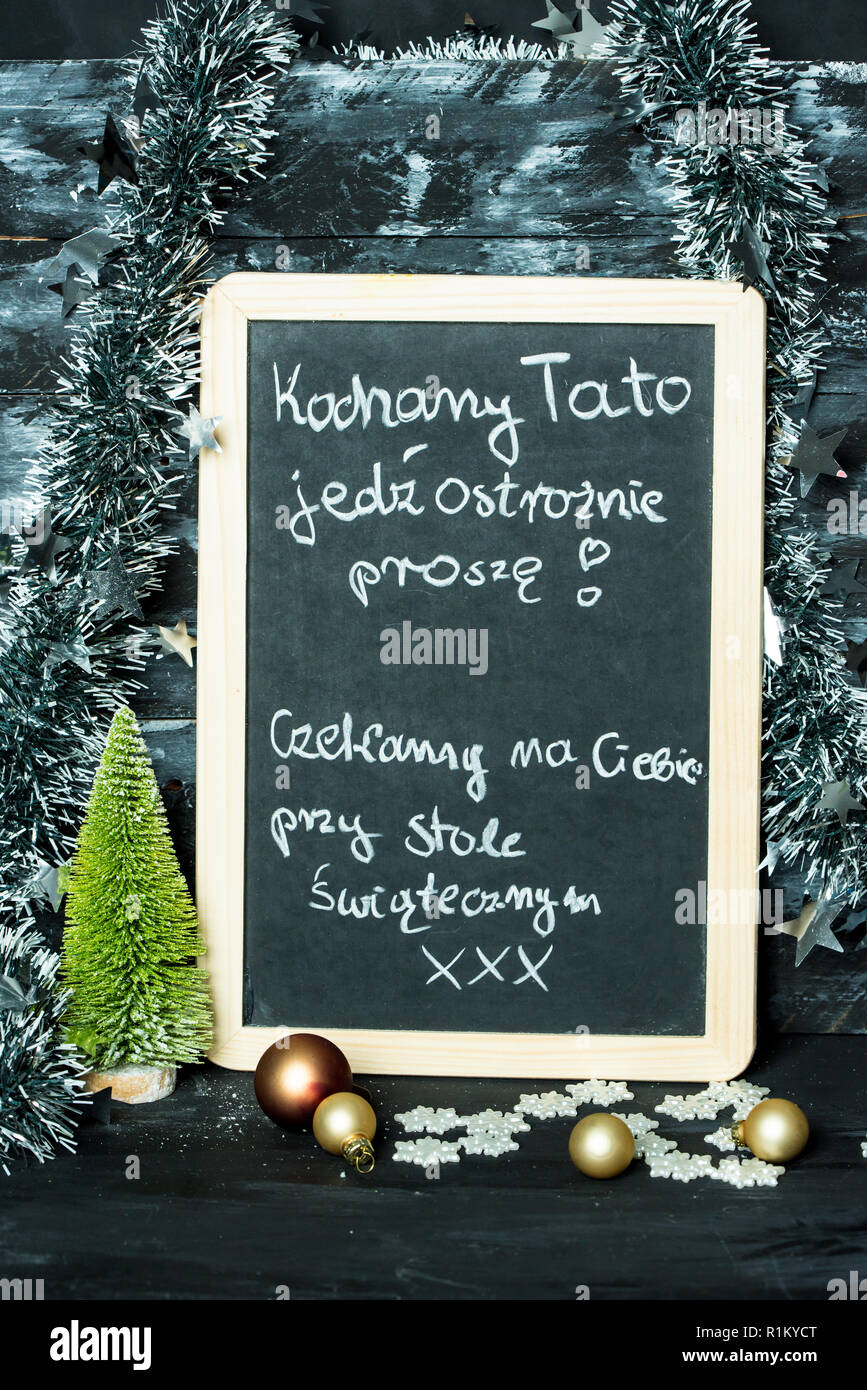 Kochany Tato
jedź ostrożnie
proszę !
Czekamy na Ciebie
przy stole
świątecznym
XXX
alamy
Image ID: R1KYCT
www.alamy.com